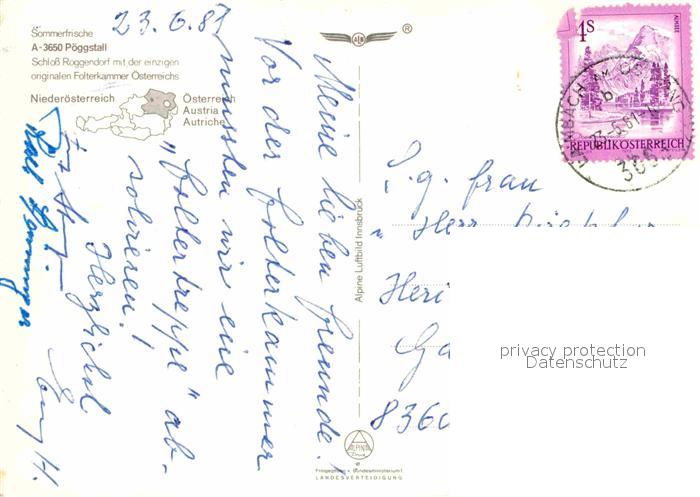 Sommerfrische
A-3650 Pöggstall
Schloß Roggendorf mit der einzigen
originalen Folterkammer Österreichs
Niederösterreich
Österreich
Austria
Autriche
23.6.81
Meine lieben Freunde!
Vor der Folterkammer
mussten wir eine
"Foltertreppe" ab-
solvieren!
Herzlichst
Alpine Luftbild Innsbruck
ALPINE
LANDESVERTEIDIGUNG
®
4S
ALMSEE
REPUBLIK ÖSTERREICH
I.g. Frau
" Herr
Heri
Ga
8360
privacy protection
Datenschutz